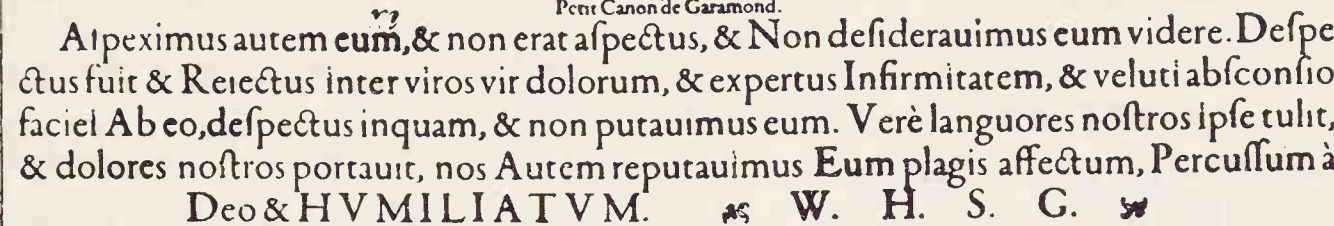 Petit Canon de Garamond.
Aſpeximus autem eum,& non erat aſpectus, & Non deſiderauimus eum videre. Deſpe
ctus fuit & Reiectus inter viros vir dolorum, & expertus Infirmitatem, & veluti abſconſio
faciei Ab eo,deſpectus inquam, & non putauimus eum. Verè languores noſtros ipſe tulit,
& dolores noſtros portauit, nos Autem reputauimus Eum plagis affectum, Percuſſum à
Deo & HVMILIATVM. W. H. S. G.